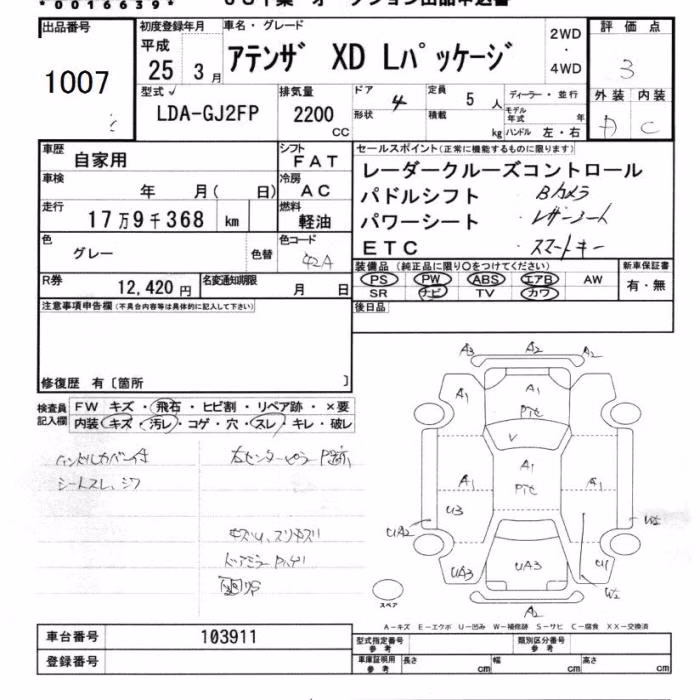 *0016639*
出品番号 初度登録年月 車名・グレード 2WD 評価点
1007 平成 25 3月 アテンザ XD Lパッケージ ・ 4WD 3
型式 排気量 ドア 4 定員 5人 ディーラー・並行 外装 内装
LDA-GJ2FP 2200 CC 形状 積載 kg モデル年式 年 ハンドル 左・右 C
車歴 自家用 シフト FAT セールスポイント(正常に機能するものに限ります)
レーダークルーズコントロール
車検 年 月( 日) 冷房 AC パドルシフト Bカメラ
走行 17万9千368 km 燃料 軽油 パワーシート レザーシート
色 グレー 色替 色コード 42A ETC スマートキー
装備品(純正品に限り○をつけてください) 新車保証書
R券 12,420円 名変通知期限 月 日 PS PW ABS エアB AW 有・無
SR ナビ TV カワ
注意事項申告欄(不具合内容等は具体的に記入して下さい) 後日品
修復歴 有〔箇所 〕
検査員記入欄 FW キズ・飛石・ヒビ割・リペア跡・×要
内装 キズ・汚レ・コゲ・穴・スレ・キレ・破レ
ハンドルカバー付 右センターピラー P跡
シートスレ、シワ
キズU、スリキズU
A3 A2 A2
A1 A1
Pてё
V
A1 A1 A1
Pてё
U3
UA2 W2
UA3 UA3 U1
W2
A2
スペア
A-キズ E-エクボ U-凹み W-補修跡 S-サビ C-腐食 XX-交換済
車台番号 103911 型式指定番号 参考 類別区分番号 参考
登録番号 車庫証明用 参考 長さ cm 幅 cm 高さ cm